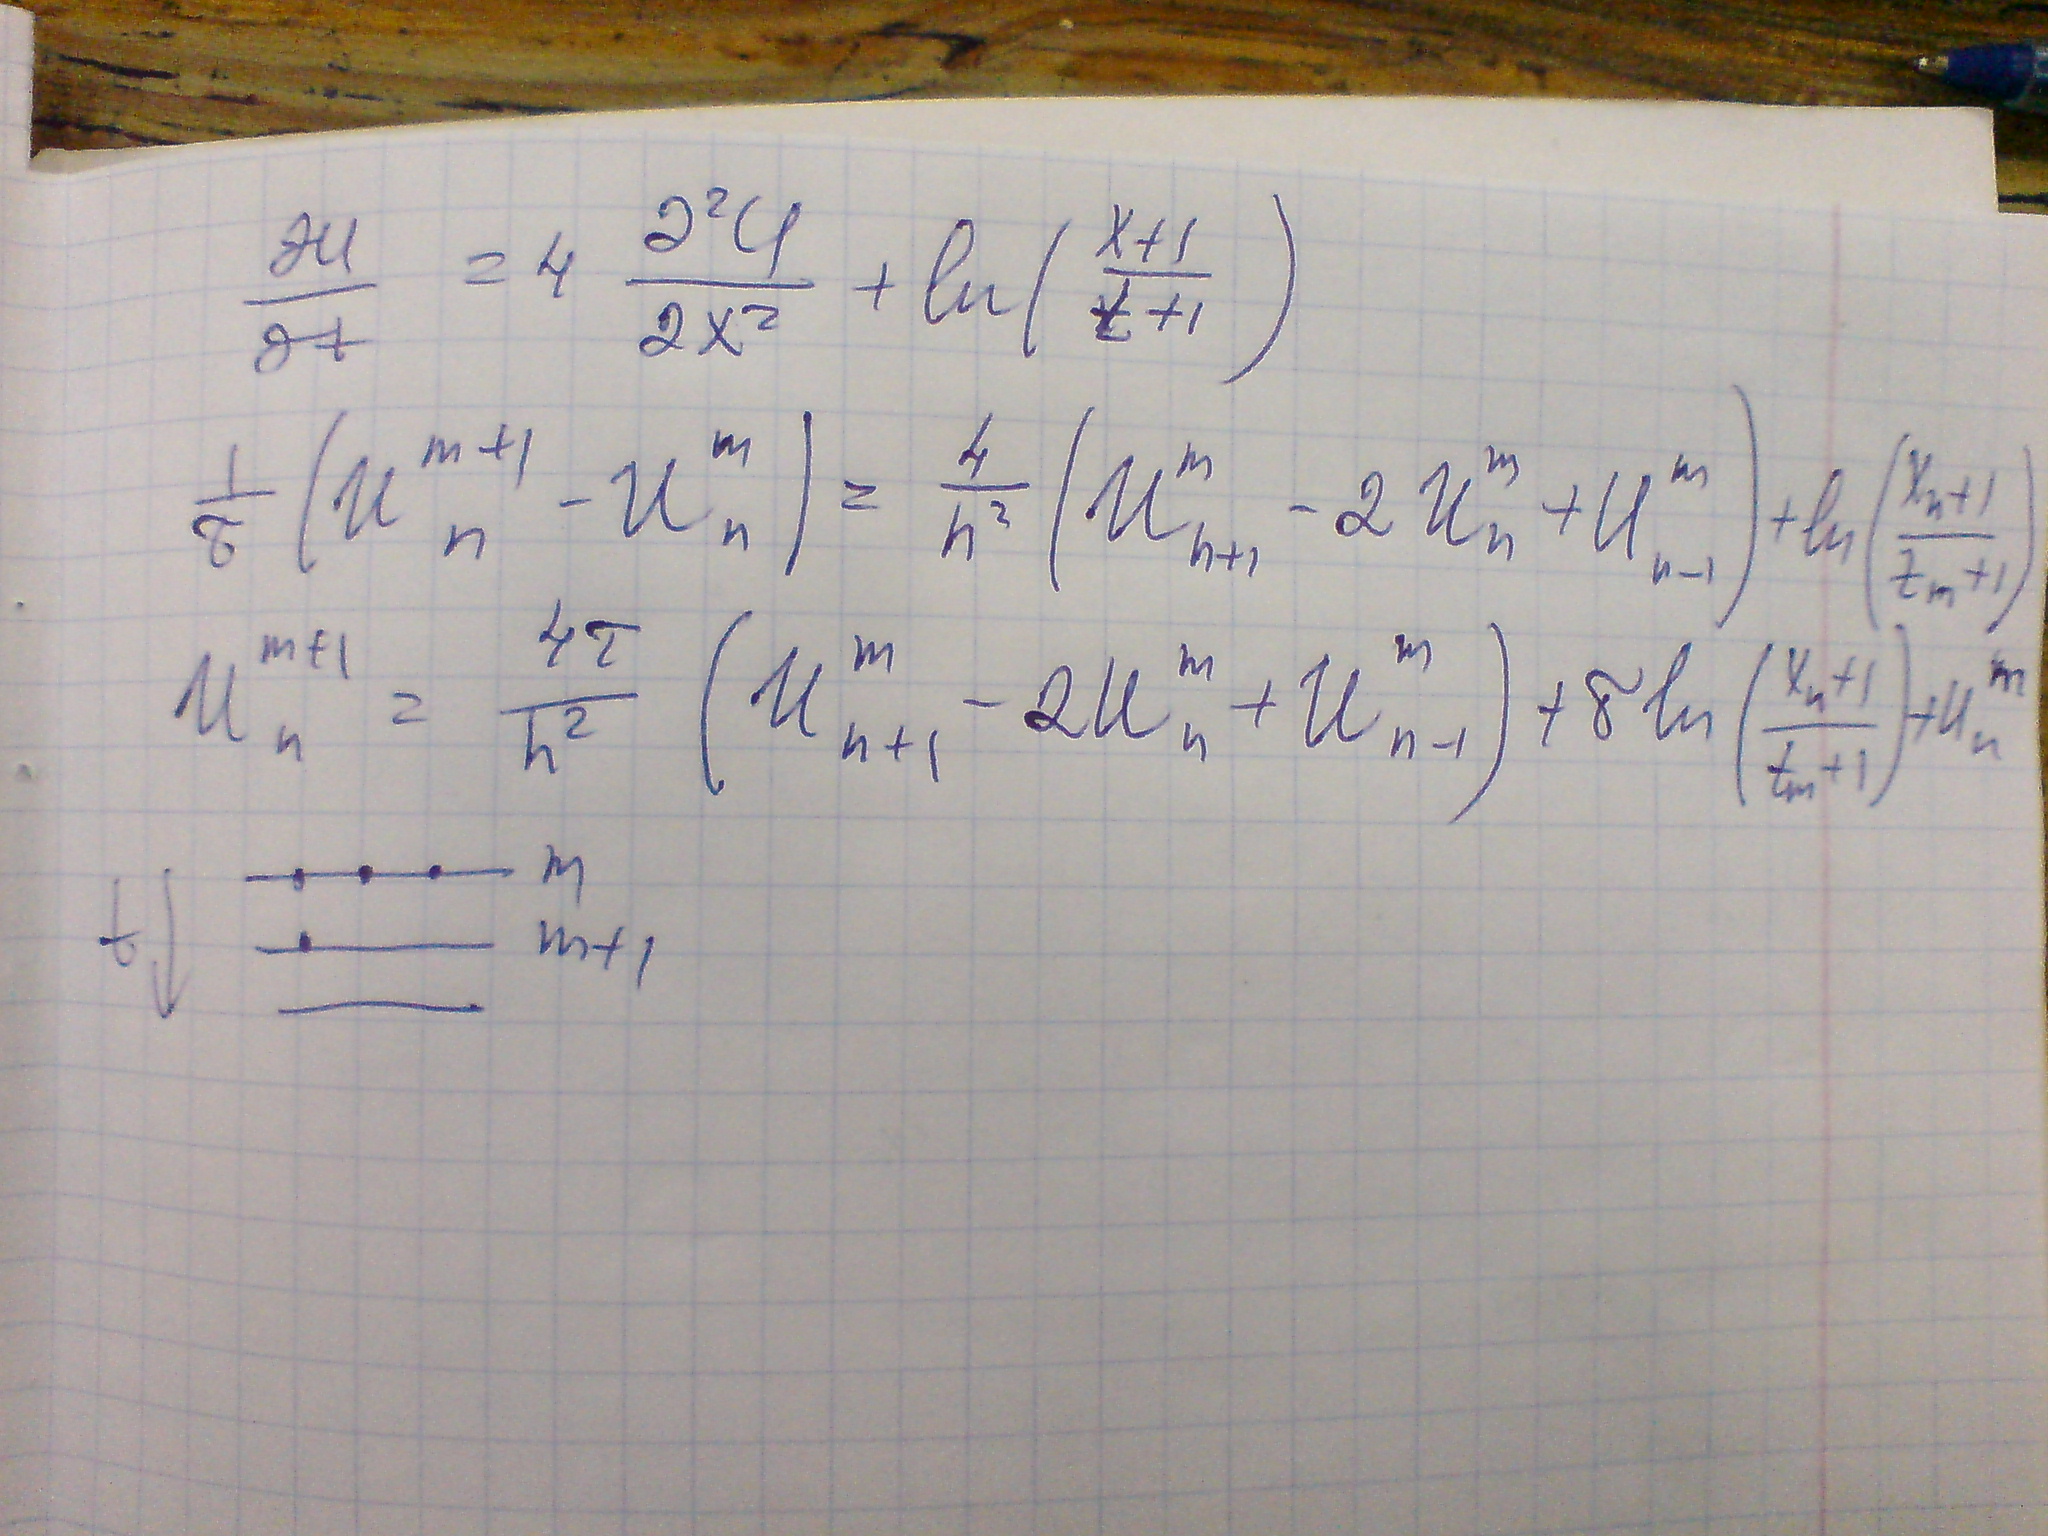 ∂u/∂t = 4 ∂²u/∂x² + ln((x+1)/(t+1))
1/τ (u_n^{m+1} - u_n^m) = 4/h² (u_{n+1}^m - 2u_n^m + u_{n-1}^m) + ln((x_n+1)/(t_m+1))
u_n^{m+1} = 4τ/h² (u_{n+1}^m - 2u_n^m + u_{n-1}^m) + τ ln((x_n+1)/(t_m+1)) + u_n^m
m
t
m+1